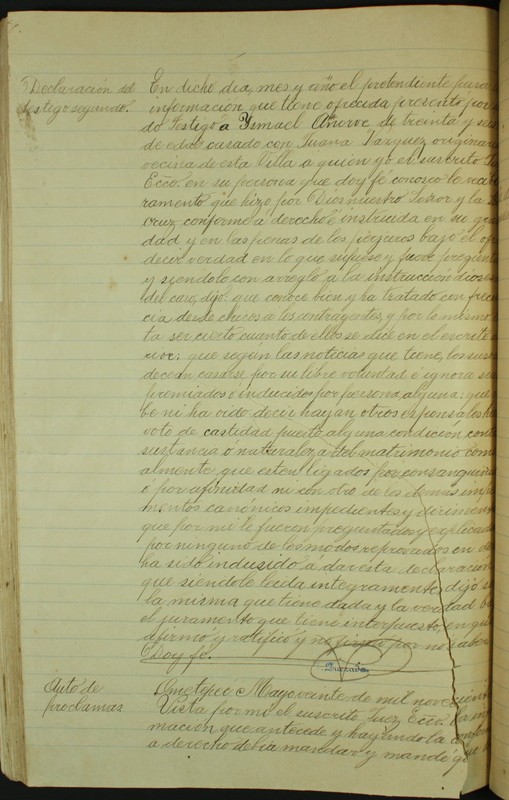 Declaración del
testigo segundo.
En dicho dia, mes y año el pretendiente para
información que tiene ofrecida presentó por
do Testigo á Ysmael Añorve, de treinta y seis
de edad casado con Juana Vazquez originario
vecina de esta Villa a quien yo el suscrito
Ecco. en su persona que doy fé conosco le recibi
ramento que hizo por Dios nuestro Señor y la
Cruz conforme á derecho é instruida en su gra
dad y en las penas de los perjuros bajo el
decir verdad en lo que supiese y fuere pregunta
y siendolo con arreglo á la instrucción dioses
del caso, dijo: que conoce bien y ha tratado con frec
cia desde chicos a los contrayentes, y por lo mismo
ta ser cierto cuanto de ellos se dice en el escrito
rior; que segun las noticias que tiene, los sus
decean casarse por su libre voluntad é ignora sea
premiados é inducidos por persona alguna: que
be ni ha oido decir hayan otros esponsales ni
voto de castidad puesto alguna condición cont
sustancia ó naturaleza del matrimonio com
almente que esten ligados por consanguini
é por afinidad ni con otro de los demas impe
mentos canónicos impedientes y dirimen
que por mi le fueron preguntados y esplicado
por ninguno de los modos reprovados en de
ha sido indusido á dar esta declaracion
que siendole leida integramente, dijó se
la misma que tiene dada y la verdad b
el juramento que tiene interpuesto, en que
afirmó y ratificó y no firmó por no saber
Doy fé.
Quezada
Auto de
proclamas
Ometepec Mayo vente de mil novecien
Vista por mi el suscrito Juez Ecco. la in
mación que antecede y hayandola conform
a derecho debia mandar y mandó q